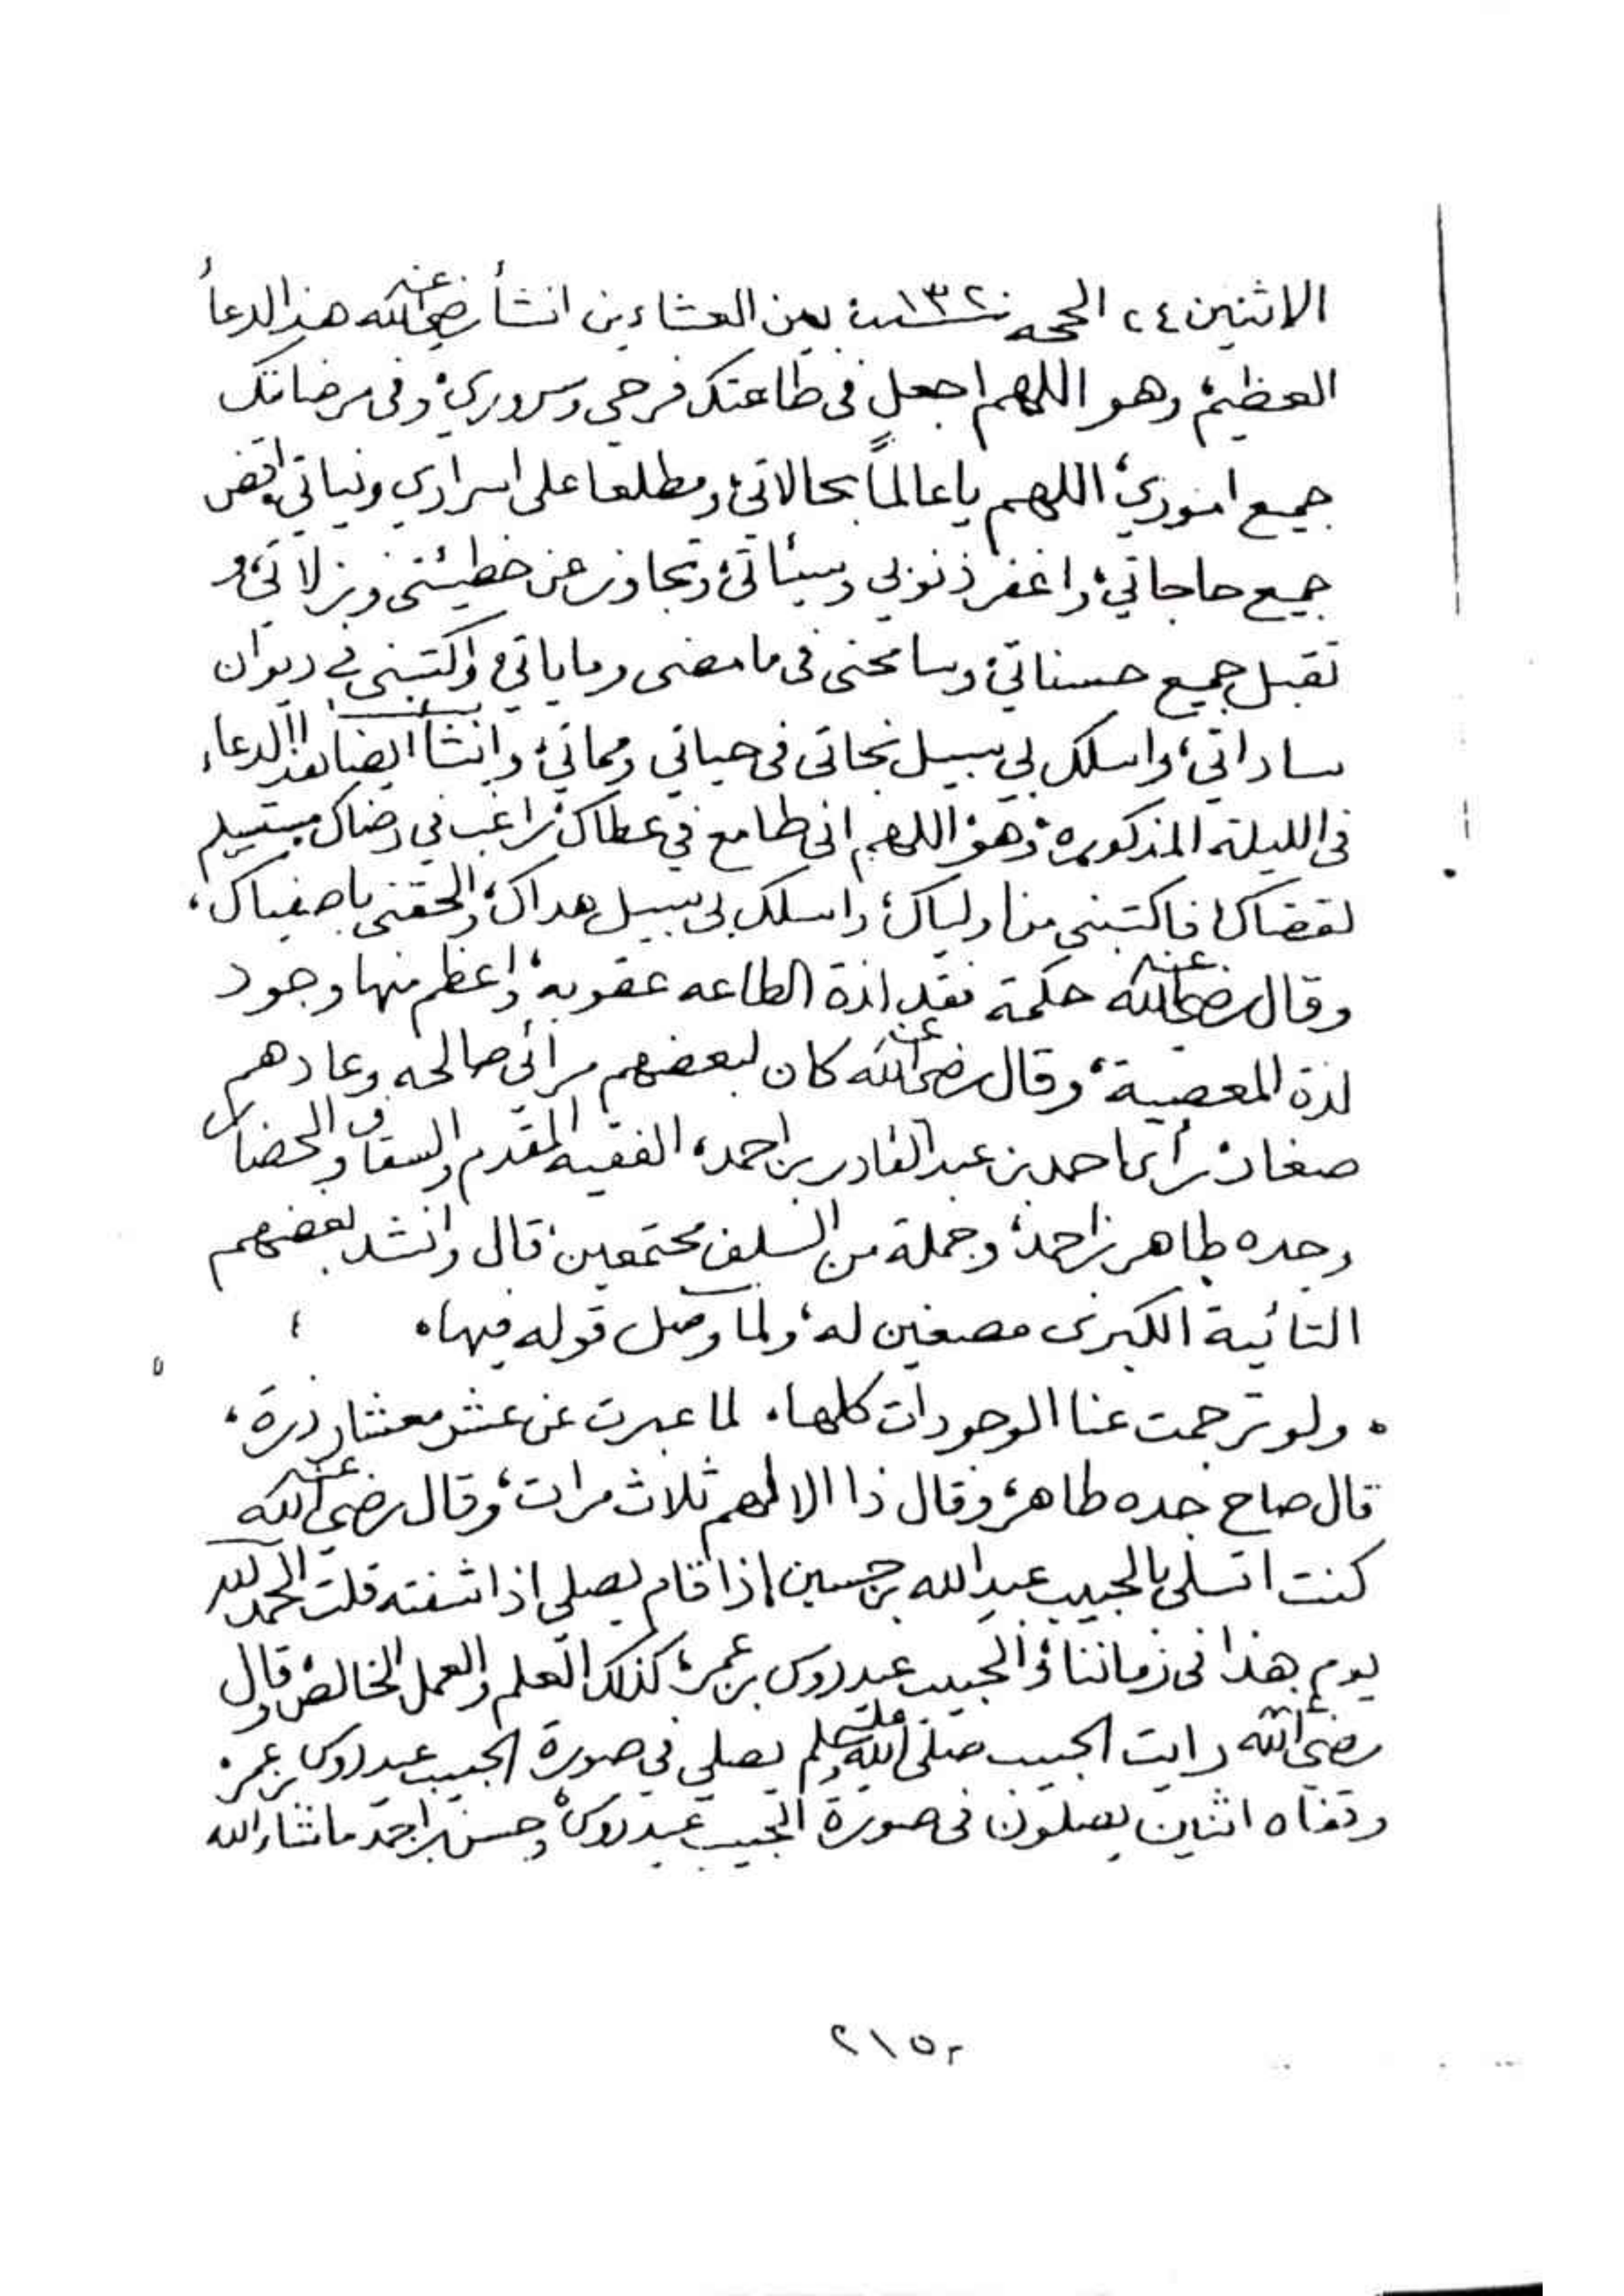 الاثنين ٢٤ الحجه سنة ١٣٢٠ بين العشاءين انشأ رضي الله عنه هذا الدعاء
العظيم وهو اللهم اجعل في طاعتك فرحي وسروري، وفي مرضاتك
جميع اموري، اللهم يا عالماً بحالاتي، ومطلعا على اسراري ونياتي، اقض
جميع حاجاتي، واغفر ذنوبي وسيئاتي، وتجاوز عن خطيئتي وزلاتي، و
تقبل جميع حسناتي، وسامحني في ما مضى وما ياتي، واكتبني في ديوان
ساداتي، واسلك بي سبيل نجاتي في حياتي ومماتي، وانشأ ايضا هذا الدعاء
في الليلة المذكوره، وهو، اللهم اني طامع في عطاك، راغب في رضاك،
لقضاك، فاكتبني من اولياك، واسلك بي سبيل هداك، والحقني باصفياك،
وقال رضي الله عنه حكمة فقد لذة الطاعه عقوبه، واعظم منها وجود
لذة المعصية، وقال رضي الله عنه كان لبعضهم مرائي صالحه وعادهم
صغار، رأى احمد بن عبد القادر بن احمد، الفقيه المقدم والسقاف والحضار
وجده طاهر بن احمد، وجملة من السلف مجتمعين، قال وانشد بعضهم
التائية الكبرى مصغين له، ولما وصل قوله فيها،
ه ولو ترجمت عنا الوجودات كلها، لما عبرت عن عشر معشار ذرة،
قال صاح جده طاهر، وقال ذا الا لهم ثلاث مرات، وقال رضي الله عنه
كنت اتسلى بالحبيب عبد الله بن حسين، اذا قام يصلي اذا شفته قلت الحمد لله
يوم هذا في زماننا، والحبيب عيدروس بن عمر، كذلك العلم والعمل الخالص، وقال
رضي الله عنه رايت الحبيب صلى الله عليه وسلم يصلي في صورة الحبيب عيدروس بن عمر،
وقفاه اثنين يصلون في صورة الحبيب عيدروس، وحسن بن احمد ما شاء الله
٢١٥